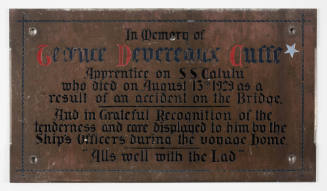 In Memory of
George Devereaux Cuffe
Apprentice on S.S. Calulu
who died on August 13th 1929 as a
result of an accident on the Bridge.
And in Grateful Recognition of the
tenderness and care displayed to him by the
Ship's Officers during the voyage home
"All's well with the Lad"